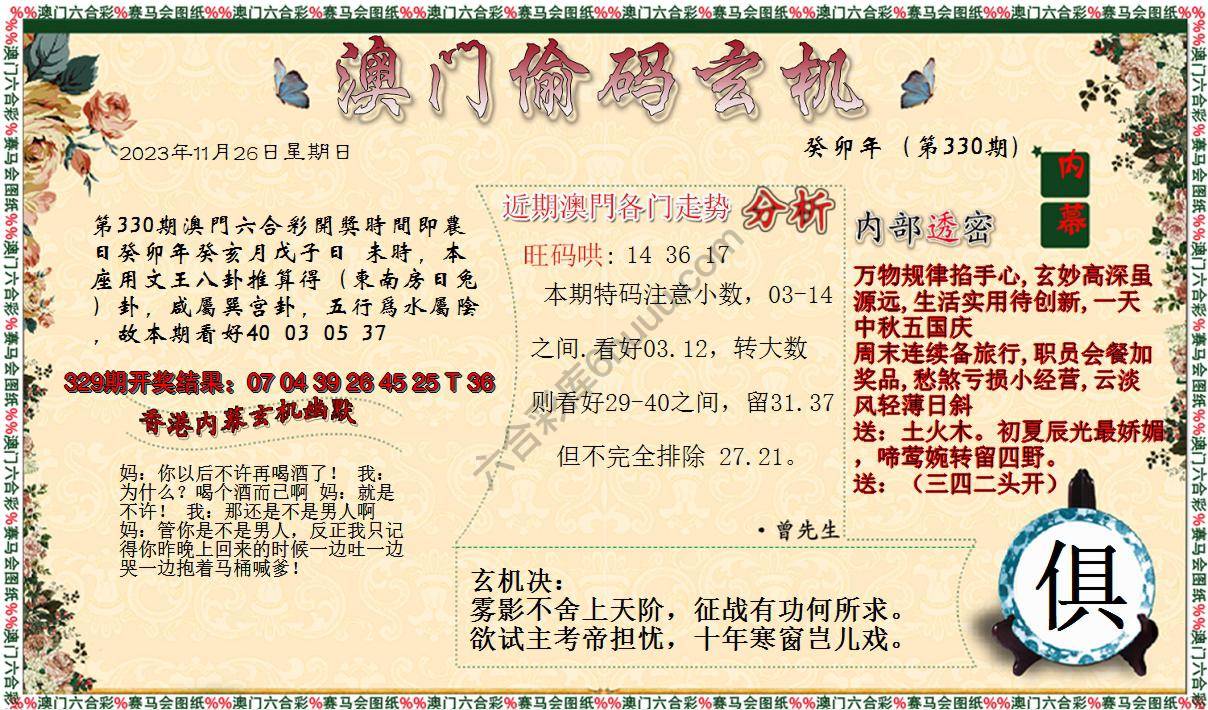 %%澳门六合彩%赛马会图纸%%澳门六合彩%赛马会图纸%%澳门六合彩%赛马会图纸%%澳门六合彩%赛马会图纸%%澳门六合彩%赛马会图纸%%澳门六合彩%赛马会图纸
澳门偷码玄机
2023年11月26日星期日
癸卯年（第330期）
内
幕
第330期澳門六合彩開獎時間即農
日癸卯年癸亥月戊子日 未時，本
座用文王八卦推算得（東南房日兔
）卦，咸屬巽宫卦，五行爲水屬陰
，故本期看好40 03 05 37
329期开奖结果：07 04 39 26 45 25 T 36
香港内幕玄机幽默
妈：你以后不许再喝酒了！ 我：
为什么？喝个酒而已啊 妈：就是
不许！ 我：那还是不是男人啊
妈：管你是不是男人，反正我只记
得你昨晚上回来的时候一边吐一边
哭一边抱着马桶喊爹！
近期澳門各门走势 分析
旺码哄：14 36 17
本期特码注意小数，03-14
之间.看好03.12，转大数
则看好29-40之间，留31.37
但不完全排除 27.21。
·曾先生
内部透密
万物规律掐手心,玄妙高深虽
源远,生活实用待创新,一天
中秋五国庆
周末连续备旅行,职员会餐加
奖品,愁煞亏损小经营,云淡
风轻薄日斜
送：土火木。初夏辰光最娇媚
，啼莺婉转留四野。
送：（三四二头开）
玄机决：
雾影不舍上天阶，征战有功何所求。
欲试主考帝担忧，十年寒窗岂儿戏。
俱
%%澳门六合彩%赛马会图纸%%澳门六合彩%赛马会图纸%%澳门六合彩%赛马会图纸%%澳门六合彩%赛马会图纸%%澳门六合彩%赛马会图纸%%澳门六合彩%赛马会图纸